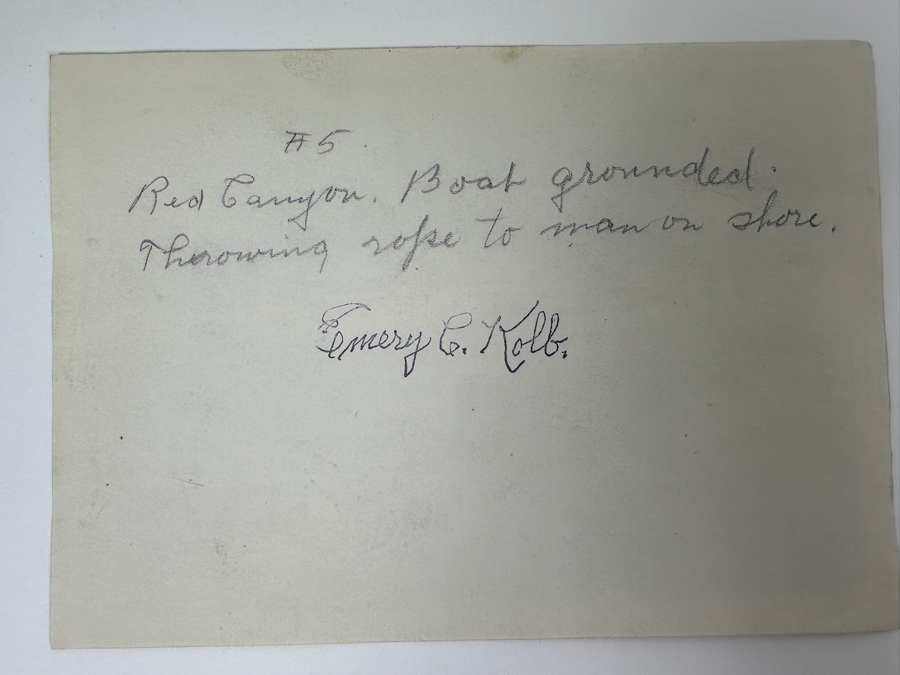 #5.
Red Canyon. Boat grounded.
Throwing rope to man on shore.
Emery C. Kolb.